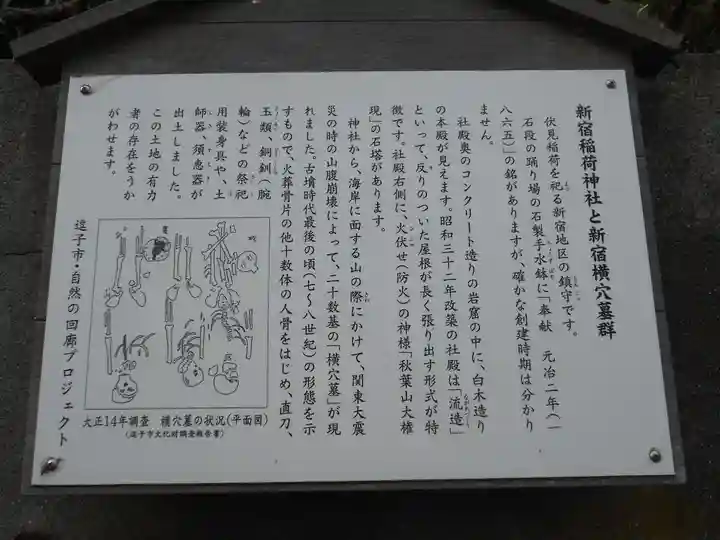 新宿稲荷神社と新宿横穴墓群
伏見稲荷を祀る新宿地区の鎮守です。
石段の踊り場の石製手水鉢に「奉献　元治二年（一
八六五）」の銘がありますが、確かな創建時期は分かり
ません。
社殿奥のコンクリート造りの岩窟の中に、白木造り
の本殿が見えます。昭和三十二年改築の社殿は「流造」
といって、反りのついた屋根が長く張り出す形式が特
徴です。社殿右側に、火伏せ（防火）の神様「秋葉山大権
現」の石塔があります。
神社から、海岸に面する山の際にかけて、関東大震
災の時の山腹崩壊によって、二十数基の「横穴墓」が現
れました。古墳時代最後の頃（七～八世紀）の形態を示
すもので、火葬骨片の他十数体の人骨をはじめ、直刀、
玉類、銅釧（腕
輪）などの祭祀
用装身具や、土
師器、須恵器が
出土しました。
この土地の有力
者の存在をうか
がわせます。
大正14年調査　横穴墓の状況（平面図）
（逗子市文化財調査報告書）
逗子市・自然の回廊プロジェクト